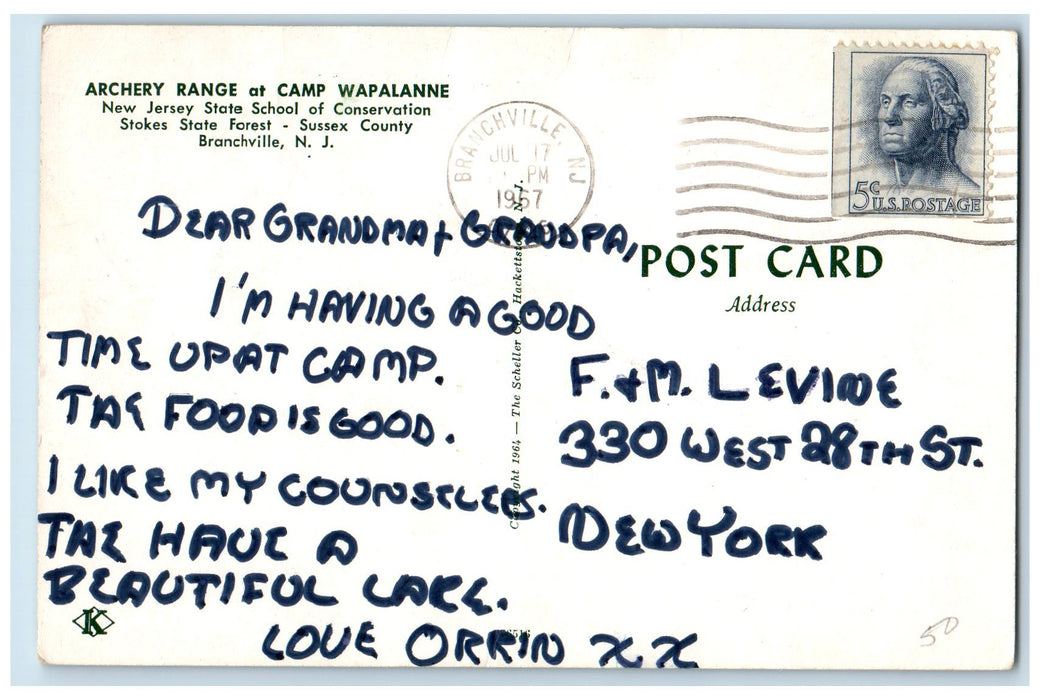 ARCHERY RANGE at CAMP WAPALANNE
New Jersey State School of Conservation
Stokes State Forest - Sussex County
Branchville, N. J.
BRANCHVILLE, NJ
JUL 17
PM
1967
5c
U.S. POSTAGE
DEAR GRANDMA + GRANDPA,
I'M HAVING A GOOD
TIME UP AT CAMP.
THE FOOD IS GOOD.
I LIKE MY COUNSELERS.
THE HAVE A
BEAUTIFUL LAKE.
LOVE ORRIN X X
K
Copyright 1964 — The Scheller Co. Hackettstown, N. J.
POST CARD
Address
F. + M. LEVINE
330 WEST 28TH ST.
NEW YORK
50